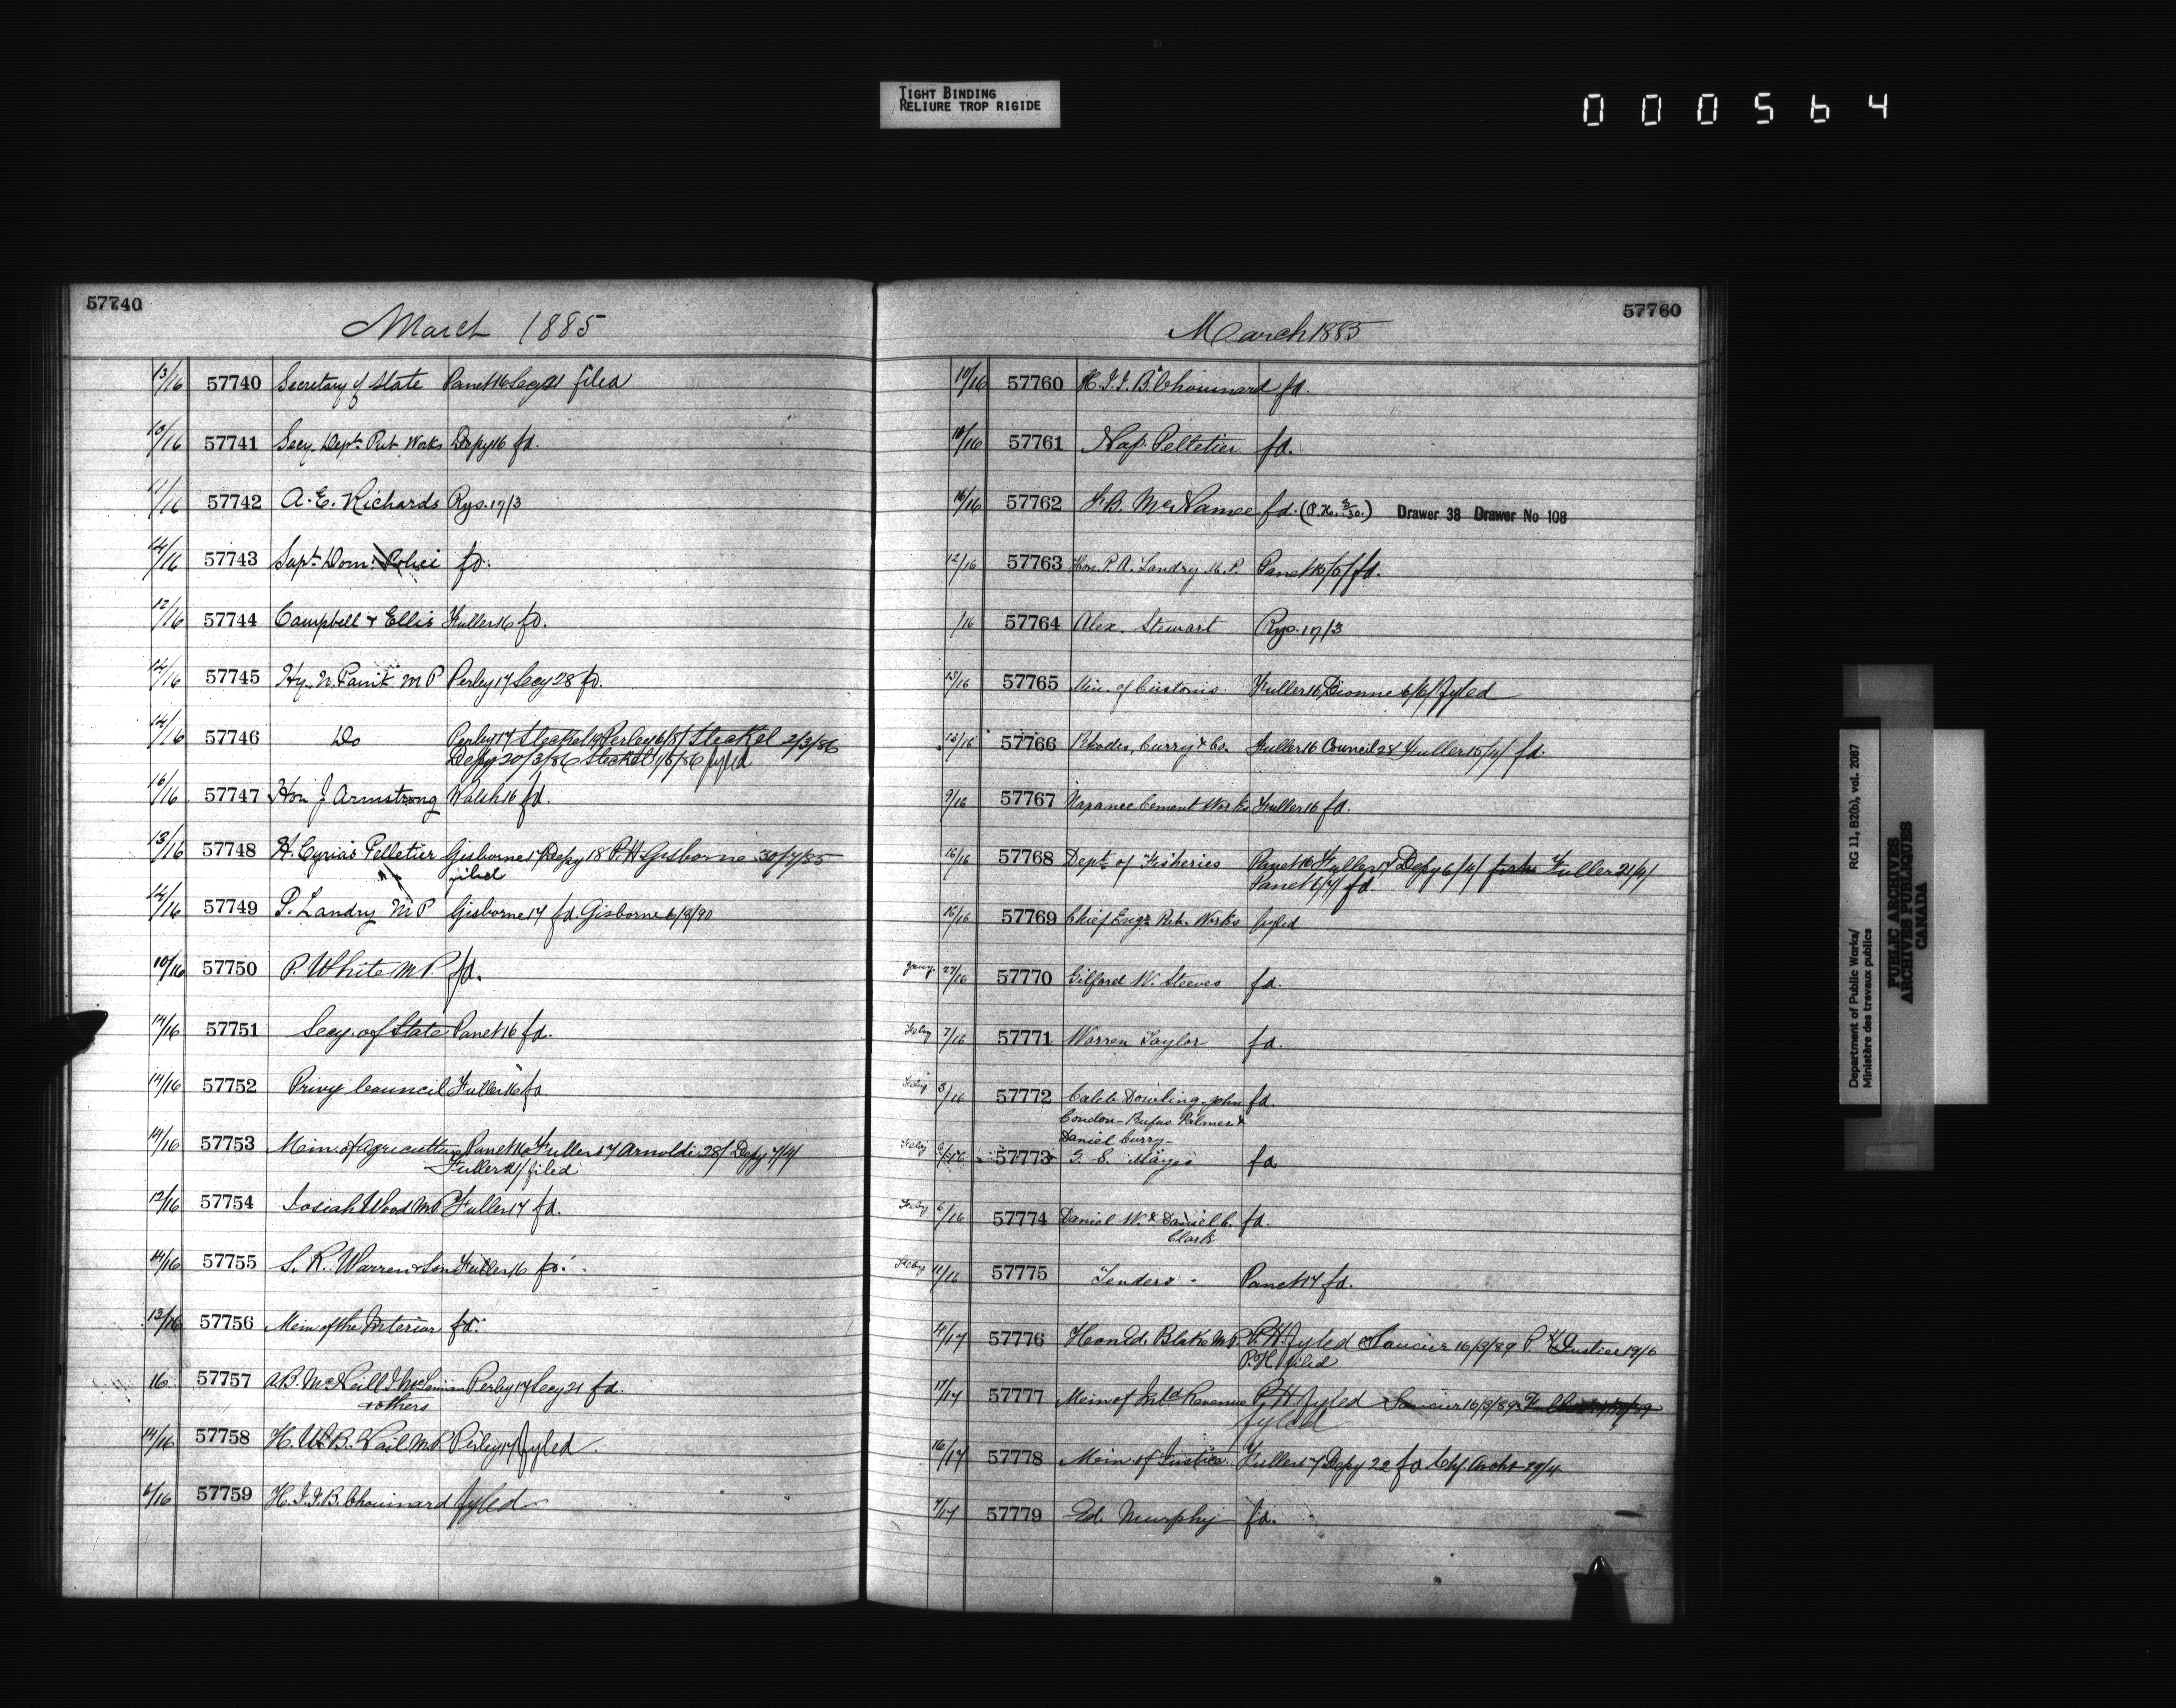 TIGHT BINDING
RELIURE TROP RIGIDE
000564
57740
March 1885
13/16 57740 Secretary of State Panet 16 Secy 21 filed
10/16 57741 Secy. Dept. Pub. Works Depy 16 fd.
11/16 57742 A. E. Richards Rys. 17/3
14/16 57743 Supt. Dom. Police fd.
12/16 57744 Campbell & Ellis Fuller 16 fd.
14/16 57745 Hy. N. Paint M P Perley 17 Secy 28 fd.
14/16 57746 Do Perley 17 Steckel 19 Perley 6/8/ Steckel 2/3/86
Depy 20/3/86 Steckel 1/5/86 fyled
16/16 57747 Hon J Armstrong Walsh 16 fd.
13/16 57748 H. Cyrias Pelletier Gisborne 17 Depy 18 P.H Gisborne 30/7/85
filed
14/16 57749 P. Landry M. P Gisborne 17 fd. Gisborne 6/3/90
10/16 57750 P. White M P. fd.
14/16 57751 Secy. of State Panet 16 fd.
14/16 57752 Privy Council Fuller 16 fd.
14/16 57753 Min. of Agriculture Panet 16 Fuller 17 Arnoldi 28/ Depy 7/4/
Fuller 21/ filed
12/16 57754 Josiah Wood M.P. Fuller 17 fd.
14/16 57755 S. R. Warren & Son Fuller 16 fd.
13/16 57756 Min of the Interior fd.
16 57757 A.B. McNeill J. McLennan Perley 17 Secy 21 fd.
& others
14/16 57758 H. W. B. Vail M.P. Perley 17 fyled.
/16 57759 H. J. J. B. Chouinard fyled
57760
March 1885
10/16 57760 H. J. J. B. Chouinard fd.
10/16 57761 Nap. Pelletier fd.
16/16 57762 F. B. McNamee fd. (P.H. 3/30.) Drawer 38 Drawer No 108
12/16 57763 Hon. P. A. Landry M. P. Panet 15/5/ fd.
/16 57764 Alex. Stewart Rys. 17/3
13/16 57765 Min. of Customs Fuller 16 Dionne 6/6/ fyled
13/16 57766 Rhodes, Curry & Co. Fuller 16 Council 24 Fuller 15/4/ fd.
9/16 57767 Napanee Cement Works Fuller 16 fd.
16/16 57768 Dept. of Fisheries Panet 16 Fuller 17 Depy 6/4/ Fuller 21/4/
Panet 1/7/ fd.
16/16 57769 Chief Engr. Pub. Works fyled
Jany. 27/16 57770 Gilford W. Steeves fd.
Feby 7/16 57771 Warren Taylor fd.
Feby 3/16 57772 Caleb Dowling, John fd.
Condon - Rufus Palmer &
Daniel Curry -
Feby 6/16 57773 G. S. Mayes fd.
Feby 6/16 57774 Daniel W. & Daniel C. fd.
Clark
Feby 11/16 57775 Tenders Panet 17 fd.
4/17 57776 Hon Ed. Blake M.P. P.H. fyled Saucier 16/3/89 P. H Justice 19/6
P.H. filed
17/17 57777 Min of Inld Revenue P.H fyled Saucier 16/3/89
fyled
16/17 57778 Min. of Justice Fuller 17 Depy 22 fd Chf. Archt 29/4
7/17 57779 Ed. Murphy fd.
Department of Public Works/
Ministère des travaux publics
RG 11, B2(b), vol. 2087
PUBLIC ARCHIVES
ARCHIVES PUBLIQUES
CANADA